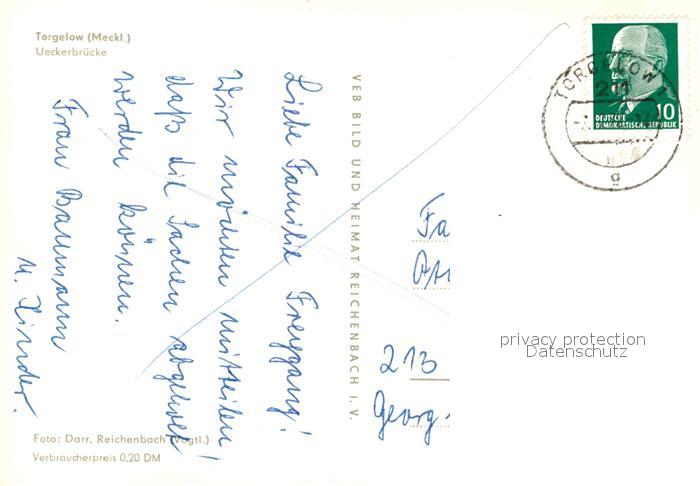 Torgelow (Meckl.)
Ueckerbrücke
Liebe Familie Freygang!
Wir möchten mitteilen!
daß die Sachen abgeholt
werden können.
Frau Baumann
u. Kinder.
Foto: Darr, Reichenbach (Vogtl.)
Verbraucherpreis 0,20 DM
VEB BILD UND HEIMAT REICHENBACH I. V.
TORGELOW
211
g
10
DEUTSCHE
DEMOKRATISCHE REPUBLIK
Fa
213
Georg-
privacy protection
Datenschutz